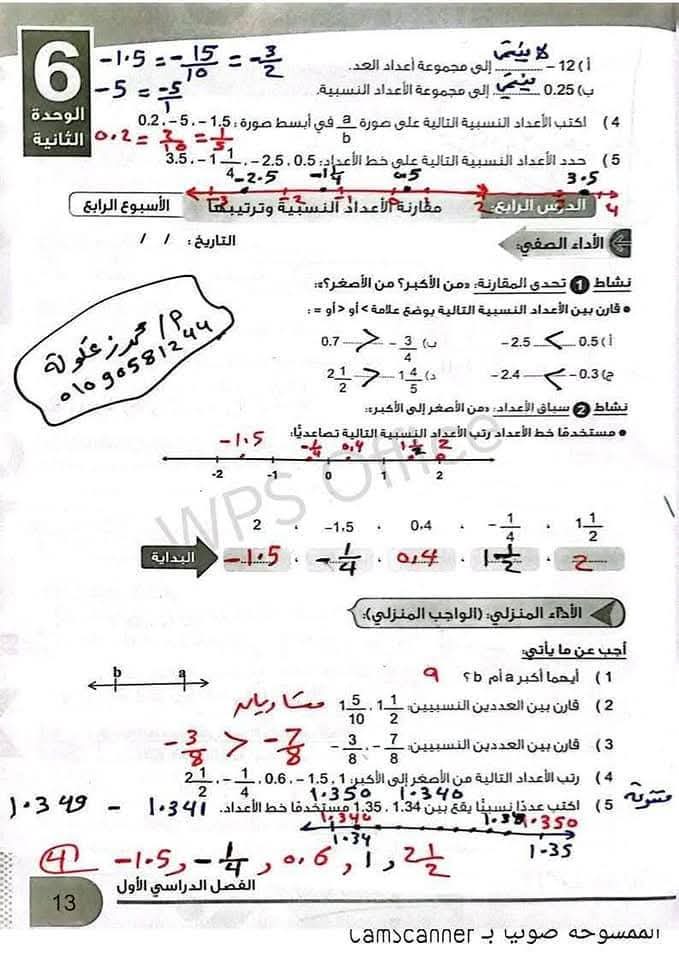 6
الوحدة
الثانية
-1.5 = -15/10 = -3/2
-5 = -5/1
0.2 = 2/10 = 1/5
أ ) 12 – لا ينتمى إلى مجموعة أعداد العد.
ب) 0.25 ينتمى إلى مجموعة الأعداد النسبية.
4 ) اكتب الأعداد النسبية التالية على صورة a/b في أبسط صورة : 1.5- ، 5- ، 0.2
5 ) حدد الأعداد النسبية التالية على خط الأعداد: 0.5 ، 2.5- ، 1 1/4- ، 3.5
-2.5 -1 1/4 0.5 3.5
-3 -2 -1 0 1 2 3 4
الدرس الرابع: مقارنة الأعداد النسبية وترتيبها الأسبوع الرابع
الأداء الصفي: التاريخ : / /
نشاط 1 تحدى المقارنة: «من الأكبر؟ من الأصغر؟»:
• قارن بين الأعداد النسبية التالية بوضع علامة > أو < أو = :
أ ) 0.5 > -2.5 ب) -3/4 < 0.7
ج) -0.3 > -2.4 د) 1 4/5 < 2 1/2
نشاط 2 سباق الأعداد: «من الأصغر إلى الأكبر:
• مستخدمًا خط الأعداد رتب الأعداد النسبية التالية تصاعديًا:
-1.5 -1/4 0,4 1 1/2 2
-2 -1 0 1 2
2 ، -1.5 ، 0.4 ، -1/4 ، 1 1/2
البداية -1.5 ، -1/4 ، 0,4 ، 1 1/2 ، 2
م/ محمد زغلولة
01090581244
الأداء المنزلي: (الواجب المنزلي):
أجب عن ما يأتي:
b a
1 ) أيهما أكبر a أم b ؟ a
2 ) قارن بين العددين النسبيين: 1 1/2 ، 1 5/10 متساويان
3 ) قارن بين العددين النسبيين: -7/8 ، -3/8 -3/8 > -7/8
4 ) رتب الأعداد التالية من الأصغر إلى الأكبر: 1 ، 1.5- ، 0.6 ، -1/4 ، 2 1/2
1.350 1.340
5 ) اكتب عددًا نسبيًا يقع بين 1.34 ، 1.35 مستخدمًا خط الأعداد. 1.341 - 1.349
1.340 1.350
1.34 1.35
4 -1.5 , -1/4 , 0.6 , 1 , 2 1/2
13 الفصل الدراسي الأول
WPS Office
الممسوحة ضوئيا بـ CamScanner